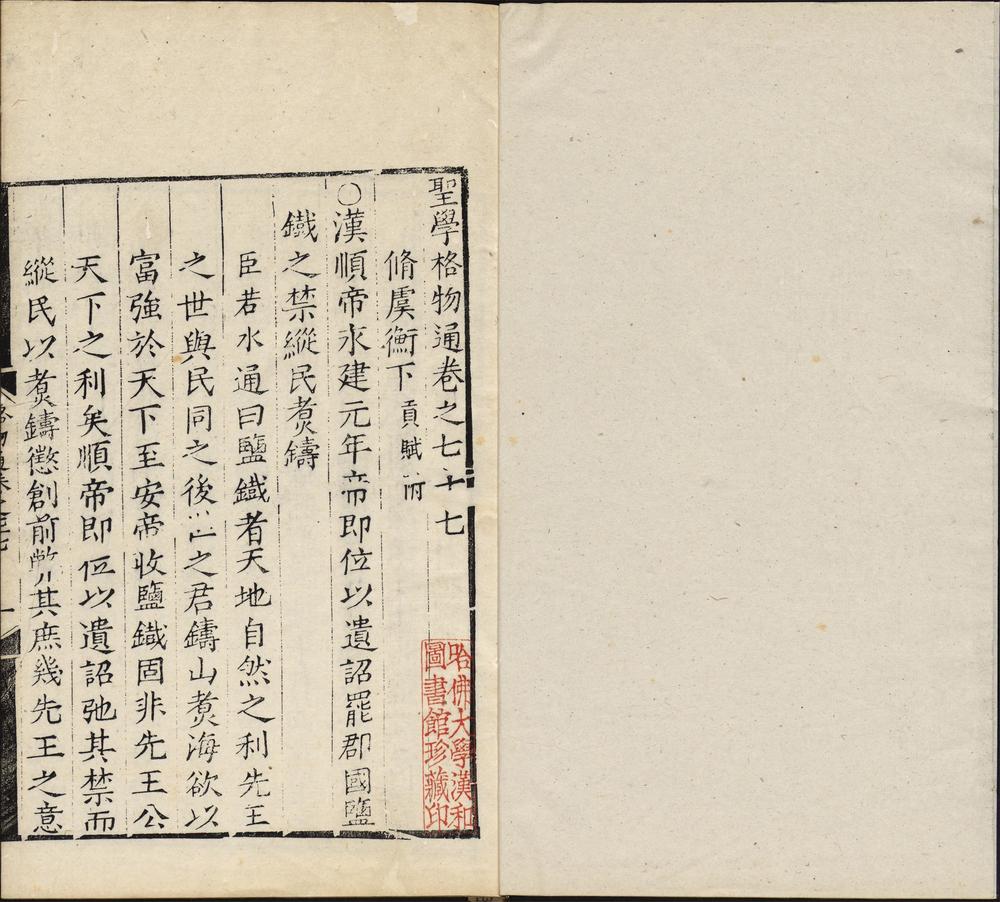 聖學格物通卷之七十七
脩虞衡下貢賦附
○漢順帝永建元年帝即位以遺詔罷郡國鹽
鐵之禁縱民煑鑄
臣若水通曰鹽鐵者天地自然之利先王
之世與民同之後世之君鑄山煑海欲以
富強於天下至安帝收鹽鐵固非先王公
天下之利矣順帝即位以遺詔弛其禁而
縱民以煑鑄懲創前弊其庶幾先王之意
格物通卷之七七
一
哈佛大學漢和
圖書館珍藏印